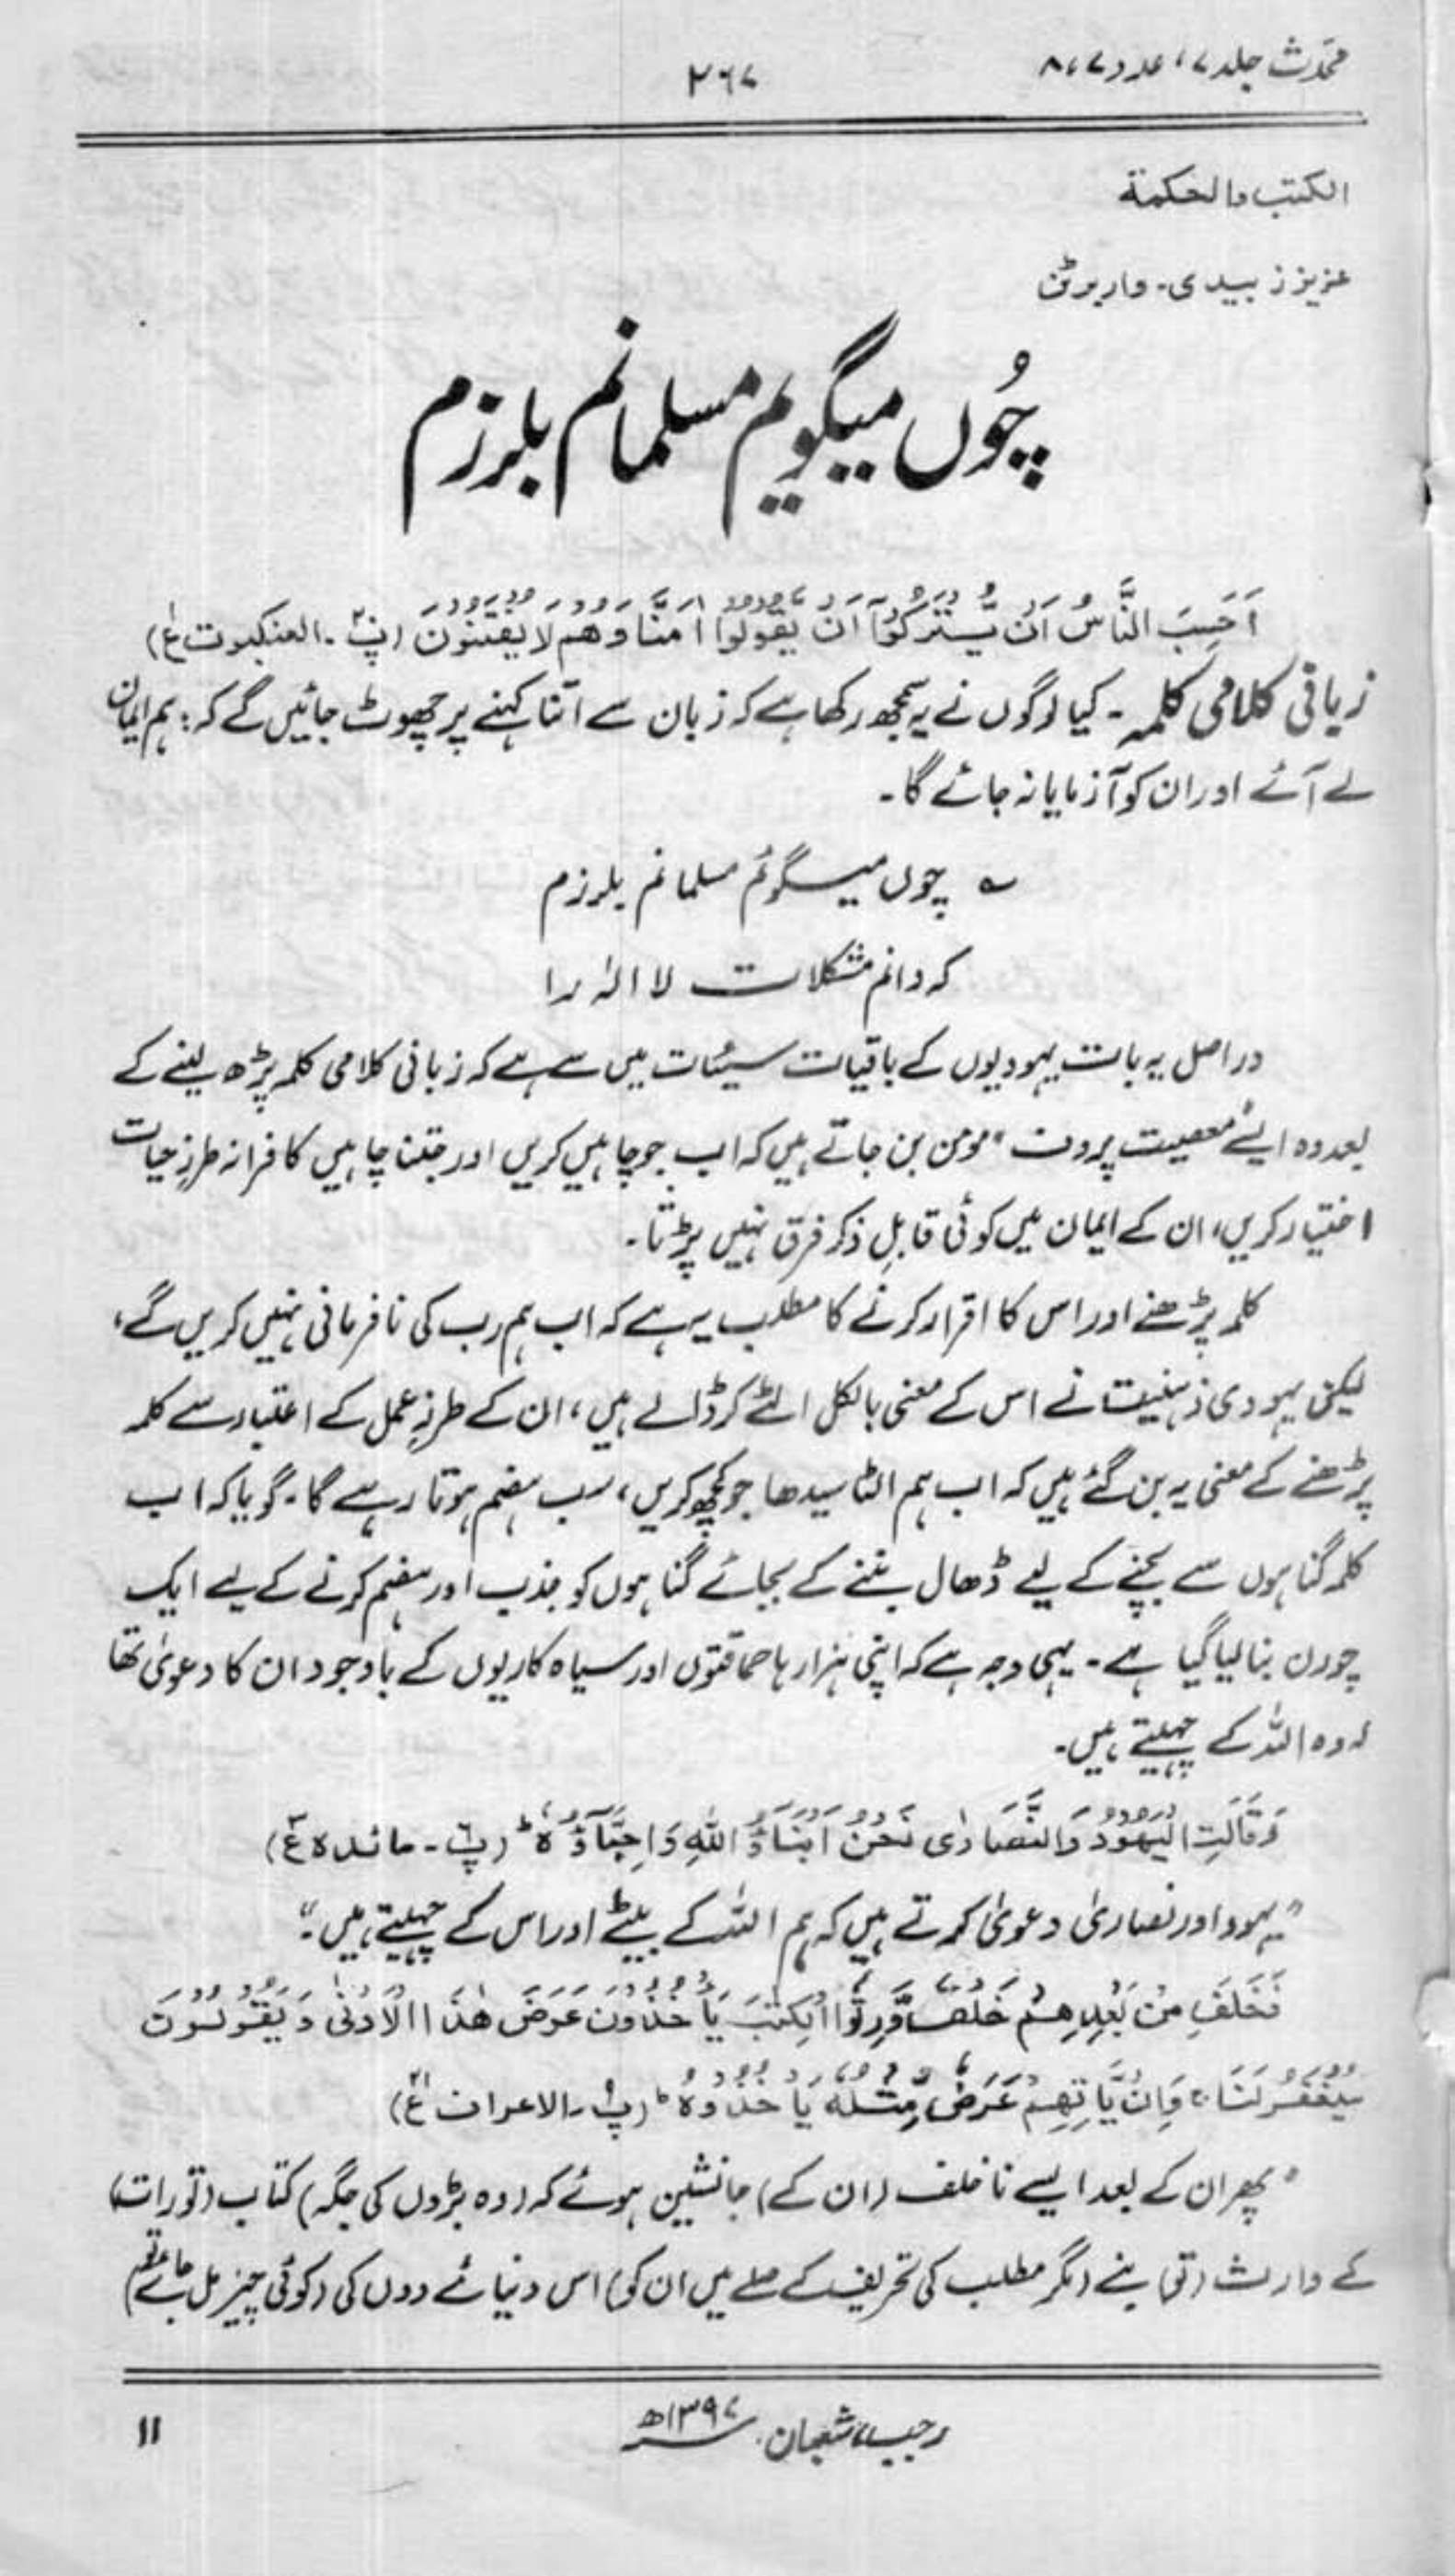 محدّث جلد ۷، عدد ۷، ۸
۲۶۷
الکتب والحکمة
عزیز زبیدی۔ واربرٹن
چُوں میگویم مسلمانم بلرزم
اَحَسِبَ النَّاسُ اَنْ یُّتْرَکُوْٓا اَنْ یَّقُوْلُوْٓا اٰمَنَّا وَھُمْ لَا یُفْتَنُوْنَ (پ۲۰۔ العنکبوت ع۱)
زبانی کلامی کلمہ ۔ کیا لوگوں نے یہ سمجھ رکھا ہے کہ زبان سے اتنا کہنے پر چھوٹ جائیں گے کہ: ہم ایمان
لے آئے اور ان کو آزمایا نہ جائے گا۔
؎ چوں میگوئم مسلمانم بلرزم
کہ دانم مشکلات لا الٰہ را
دراصل یہ بات یہودیوں کے باقیات سیئات میں سے ہے کہ زبانی کلامی کلمہ پڑھ لینے کے
بعد وہ ایسے "معصیت پروف" مومن بن جاتے ہیں کہ اب جو چاہیں کریں اور جتنا چاہیں کافرانہ طرزِ حیات
اختیار کریں، ان کے ایمان میں کوئی قابلِ ذکر فرق نہیں پڑتا۔
کلمہ پڑھنے اور اس کا اقرار کرنے کا مطلب یہ ہے کہ اب ہم رب کی نافرمانی نہیں کریں گے،
لیکن یہودی ذہنیت نے اس کے معنی بالکل الٹے کر ڈالے ہیں، ان کے طرزِ عمل کے اعتبار سے کلمہ
پڑھنے کے معنی یہ بن گئے ہیں کہ اب ہم الٹا سیدھا جو کچھ کریں، سب ہضم ہوتا رہے گا۔ گویا کہ اب
کلمہ گناہوں سے بچنے کے لیے ڈھال بننے کے بجائے گناہوں کو جذب اور ہضم کرنے کے لیے ایک
چورن بنا لیا گیا ہے۔ یہی وجہ ہے کہ اپنی ہزارہا حماقتوں اور سیاہ کاریوں کے باوجود ان کا دعویٰ تھا
کہ وہ اللہ کے چہیتے ہیں۔
وَقَالَتِ الْیَھُوْدُ وَالنَّصَارٰی نَحْنُ اَبْنَآؤُ اللّٰهِ وَاَحِبَّآؤُہٗ ط (پ۶۔ مائدہ ع۳)
"یہود اور نصاریٰ دعویٰ کرتے ہیں کہ ہم اللہ کے بیٹے اور اس کے چہیتے ہیں۔"
فَخَلَفَ مِنْ بَعْدِهِمْ خَلْفٌ وَّرِثُوا الْکِتٰبَ یَاْخُذُوْنَ عَرَضَ ھٰذَا الْاَدْنٰی وَیَقُوْلُوْنَ
سَیُغْفَرُ لَنَا ۚ وَاِنْ یَّاْتِهِمْ عَرَضٌ مِّثْلُهٗ یَاْخُذُوْهُ ط (پ۹۔ الاعراف ع۲۱)
"پھر ان کے بعد ایسے ناخلف (ان کے) جانشین ہوئے کہ (وہ بڑوں کی جگہ) کتاب (تورات)
کے وارث (تو) بنے (مگر مطلب کی تحریف کے صلے میں ان کو) اس دنیائے دوں کی (کوئی چیز مل جائے تو)
رجب، شعبان ۱۳۹۷ھ
۱۱